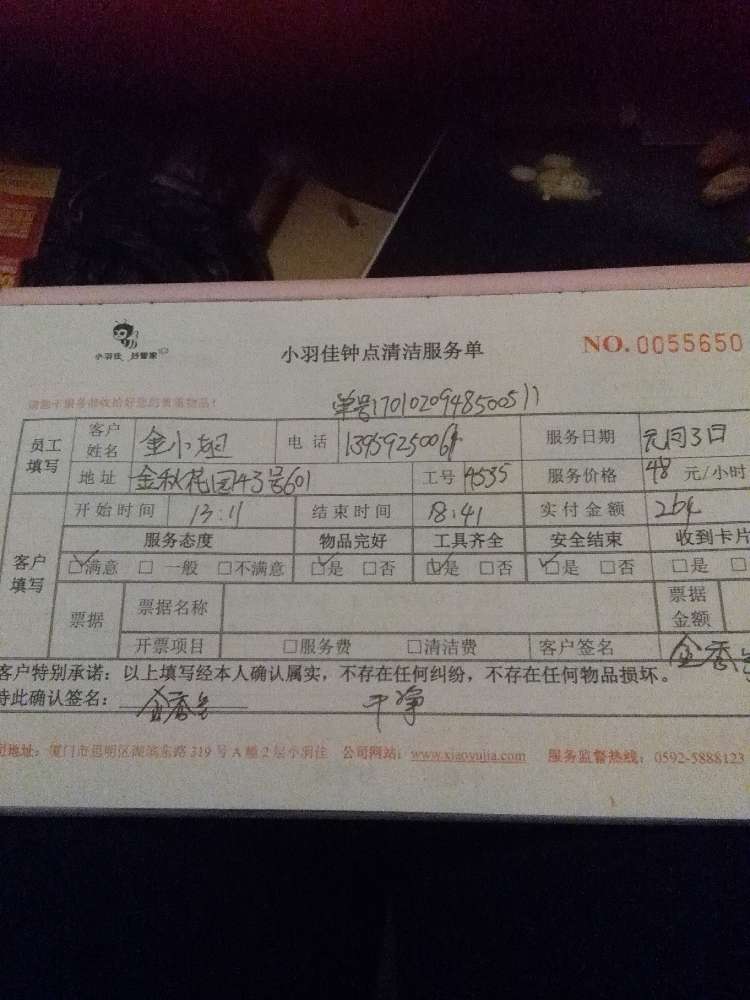 小羽佳 妙管家
小羽佳钟点清洁服务单
NO. 0055650
单号1701020948500511
员工填写 客户姓名 金小姐 电话 服务日期 元月3日
地址 金秋花园43号601 工号 4535 服务价格 48 元/小时
客户填写 开始时间 13:11 结束时间 18:41 实付金额 264
服务态度 物品完好 工具齐全 安全结束 收到卡片
☑满意 □一般 □不满意 ☑是 □否 ☑是 □否 ☑是 □否 □是 □
票据 票据名称 票据金额
开票项目 □服务费 □清洁费 客户签名
客户特别承诺：以上填写经本人确认属实，不存在任何纠纷，不存在任何物品损坏。
特此确认签名： 干净
地址：厦门市思明区湖滨东路319号A幢2层小羽佳 公司网站：www.xiaoyujia.com 服务监督热线：0592-5888123